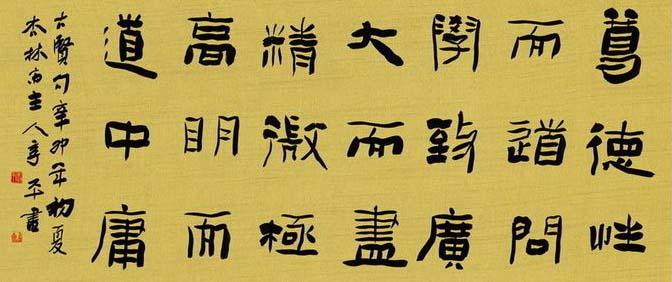 尊德性
而道問
學致廣
大而盡
精微極
高明而
道中庸
古賢句辛卯年初夏
杏林主人平書